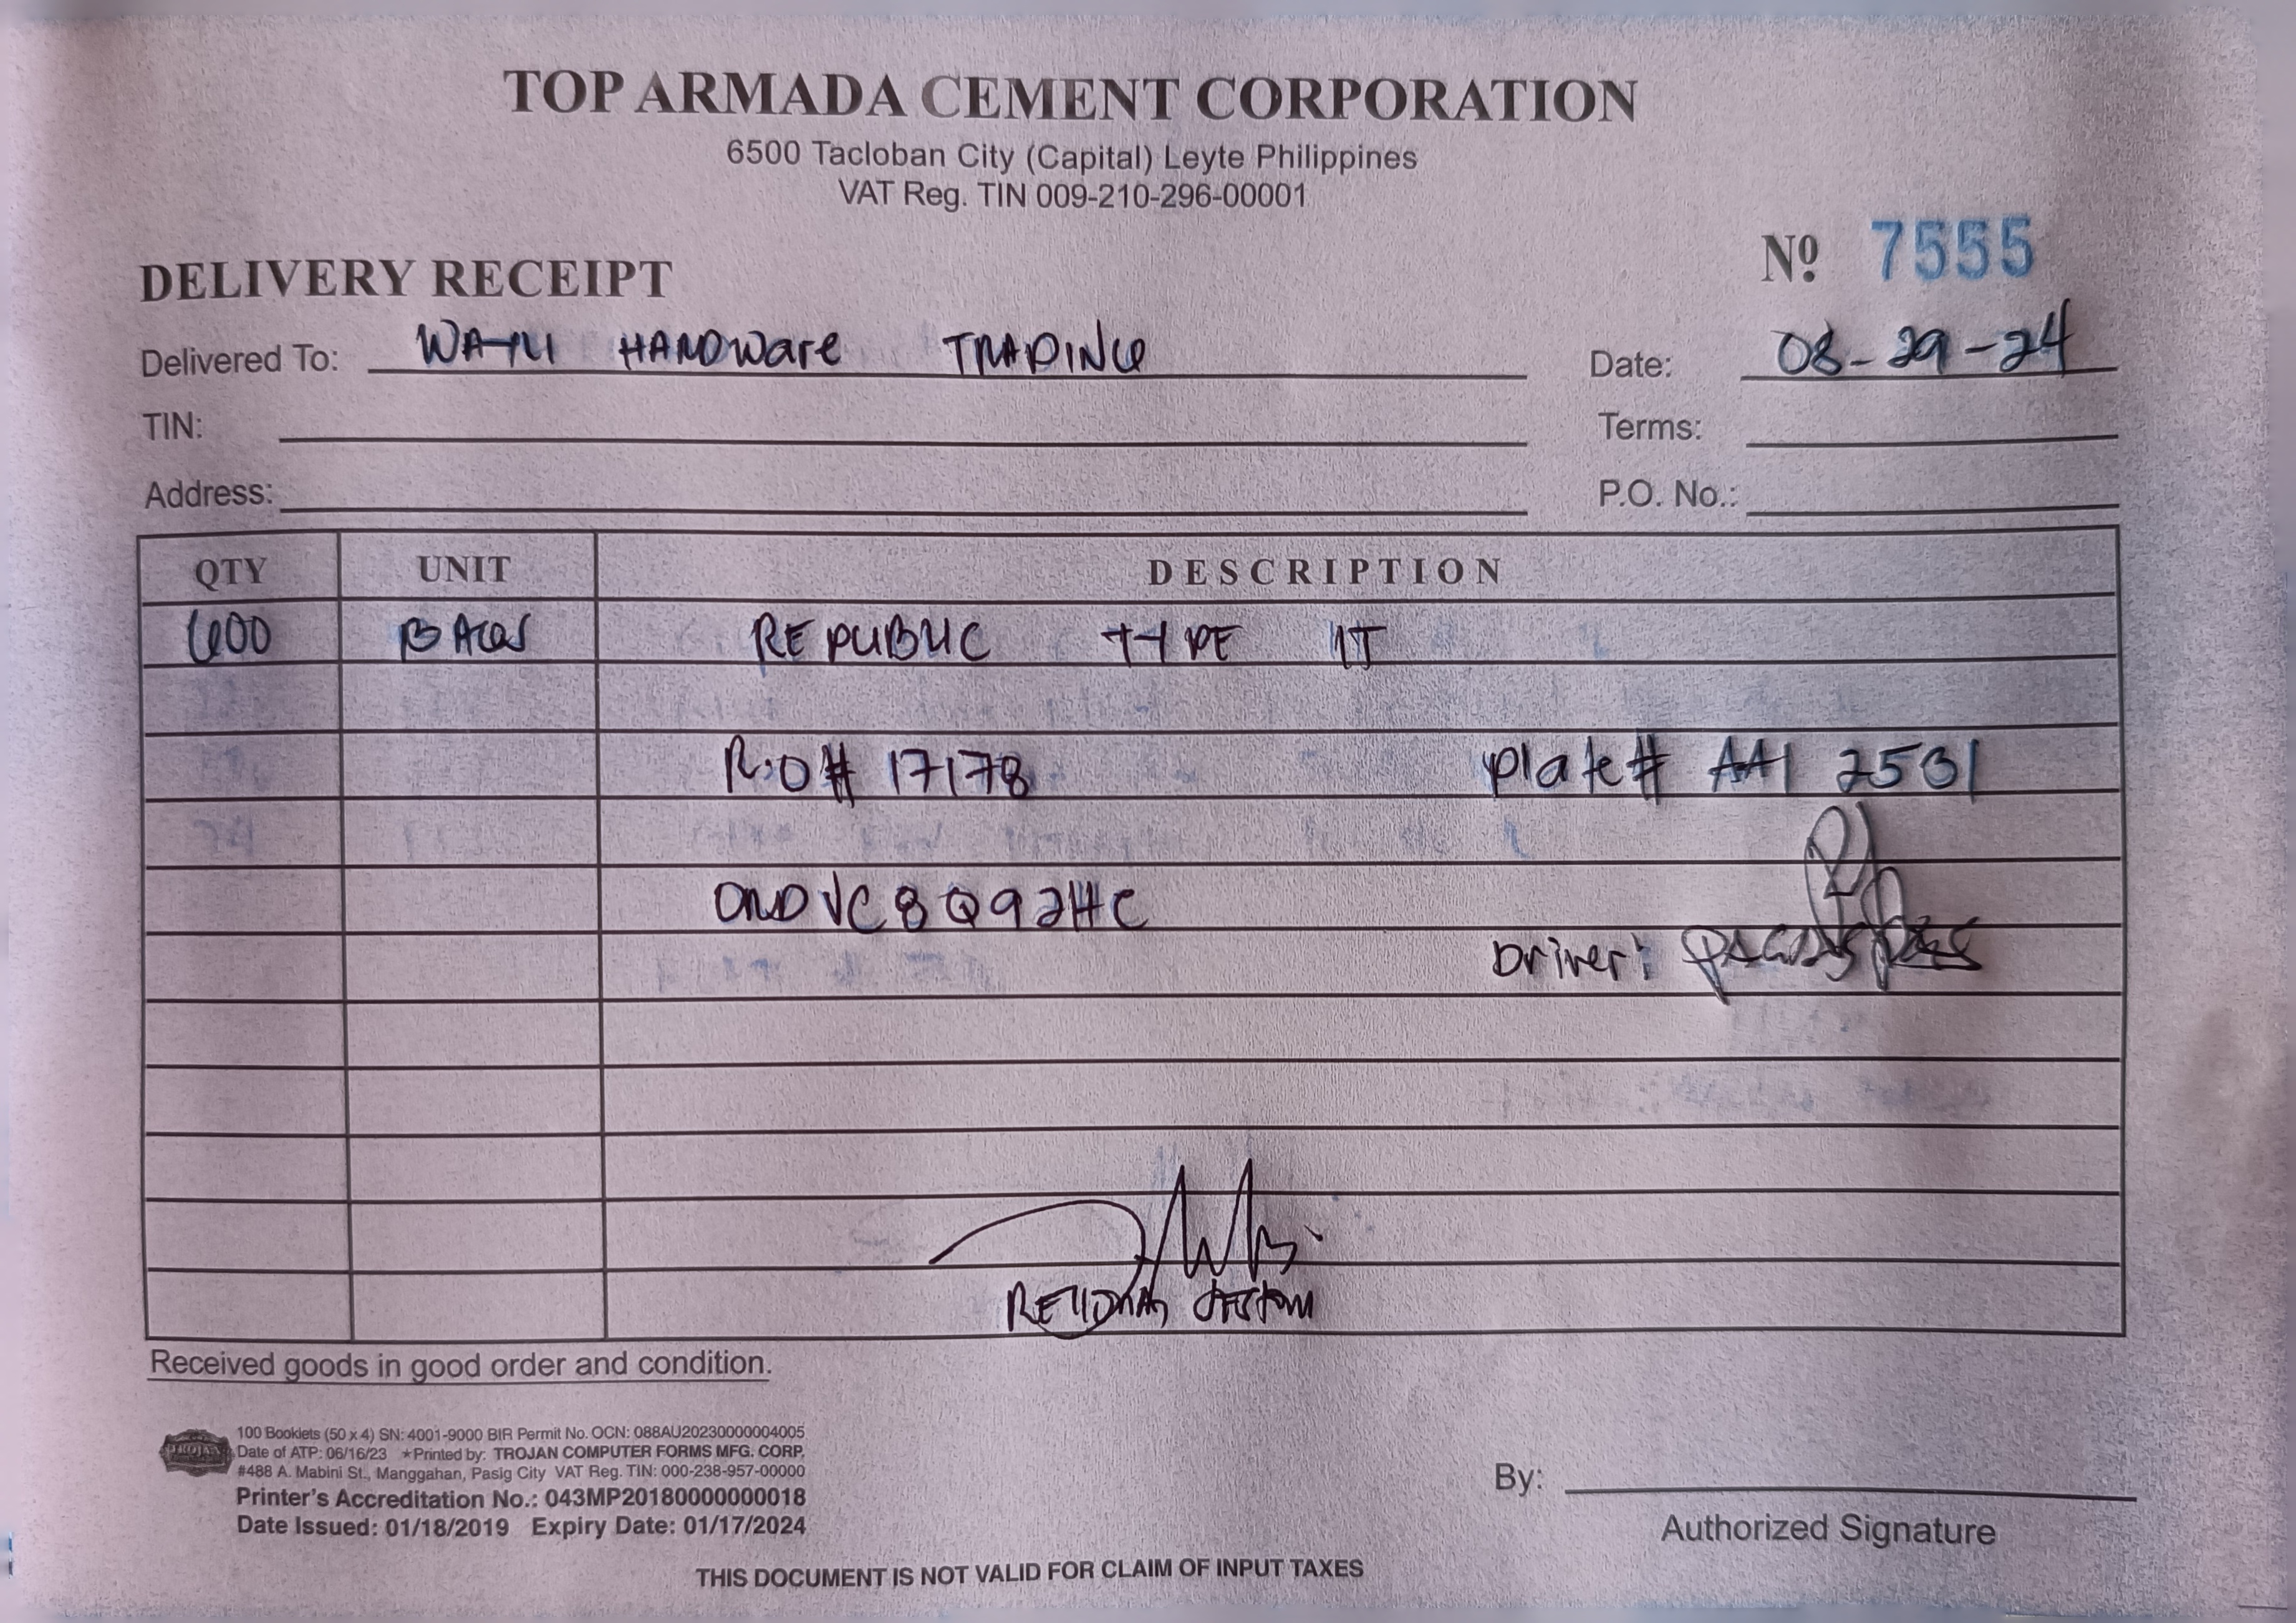 TOP ARMADA CEMENT CORPORATION
6500 Tacloban City (Capital) Leyte Philippines
VAT Reg. TIN 009-210-296-00001
DELIVERY RECEIPT
Nº 7555
Delivered To: HARDWare TRADING
Date: 08-29-24
TIN:
Terms:
Address:
P.O. No.:
QTY UNIT DESCRIPTION
600 BAGS REPUBLIC TYPE 1T
R.O# 17178 Plate# AAI 2531
Driver:
Received goods in good order and condition.
TROJAN
100 Booklets (50 x 4) SN: 4001-9000 BIR Permit No. OCN: 088AU20230000004005
Date of ATP: 06/16/23 ★Printed by: TROJAN COMPUTER FORMS MFG. CORP.
#488 A. Mabini St., Manggahan, Pasig City VAT Reg. TIN: 000-238-957-00000
Printer's Accreditation No.: 043MP20180000000018
Date Issued: 01/18/2019 Expiry Date: 01/17/2024
By:
Authorized Signature
THIS DOCUMENT IS NOT VALID FOR CLAIM OF INPUT TAXES